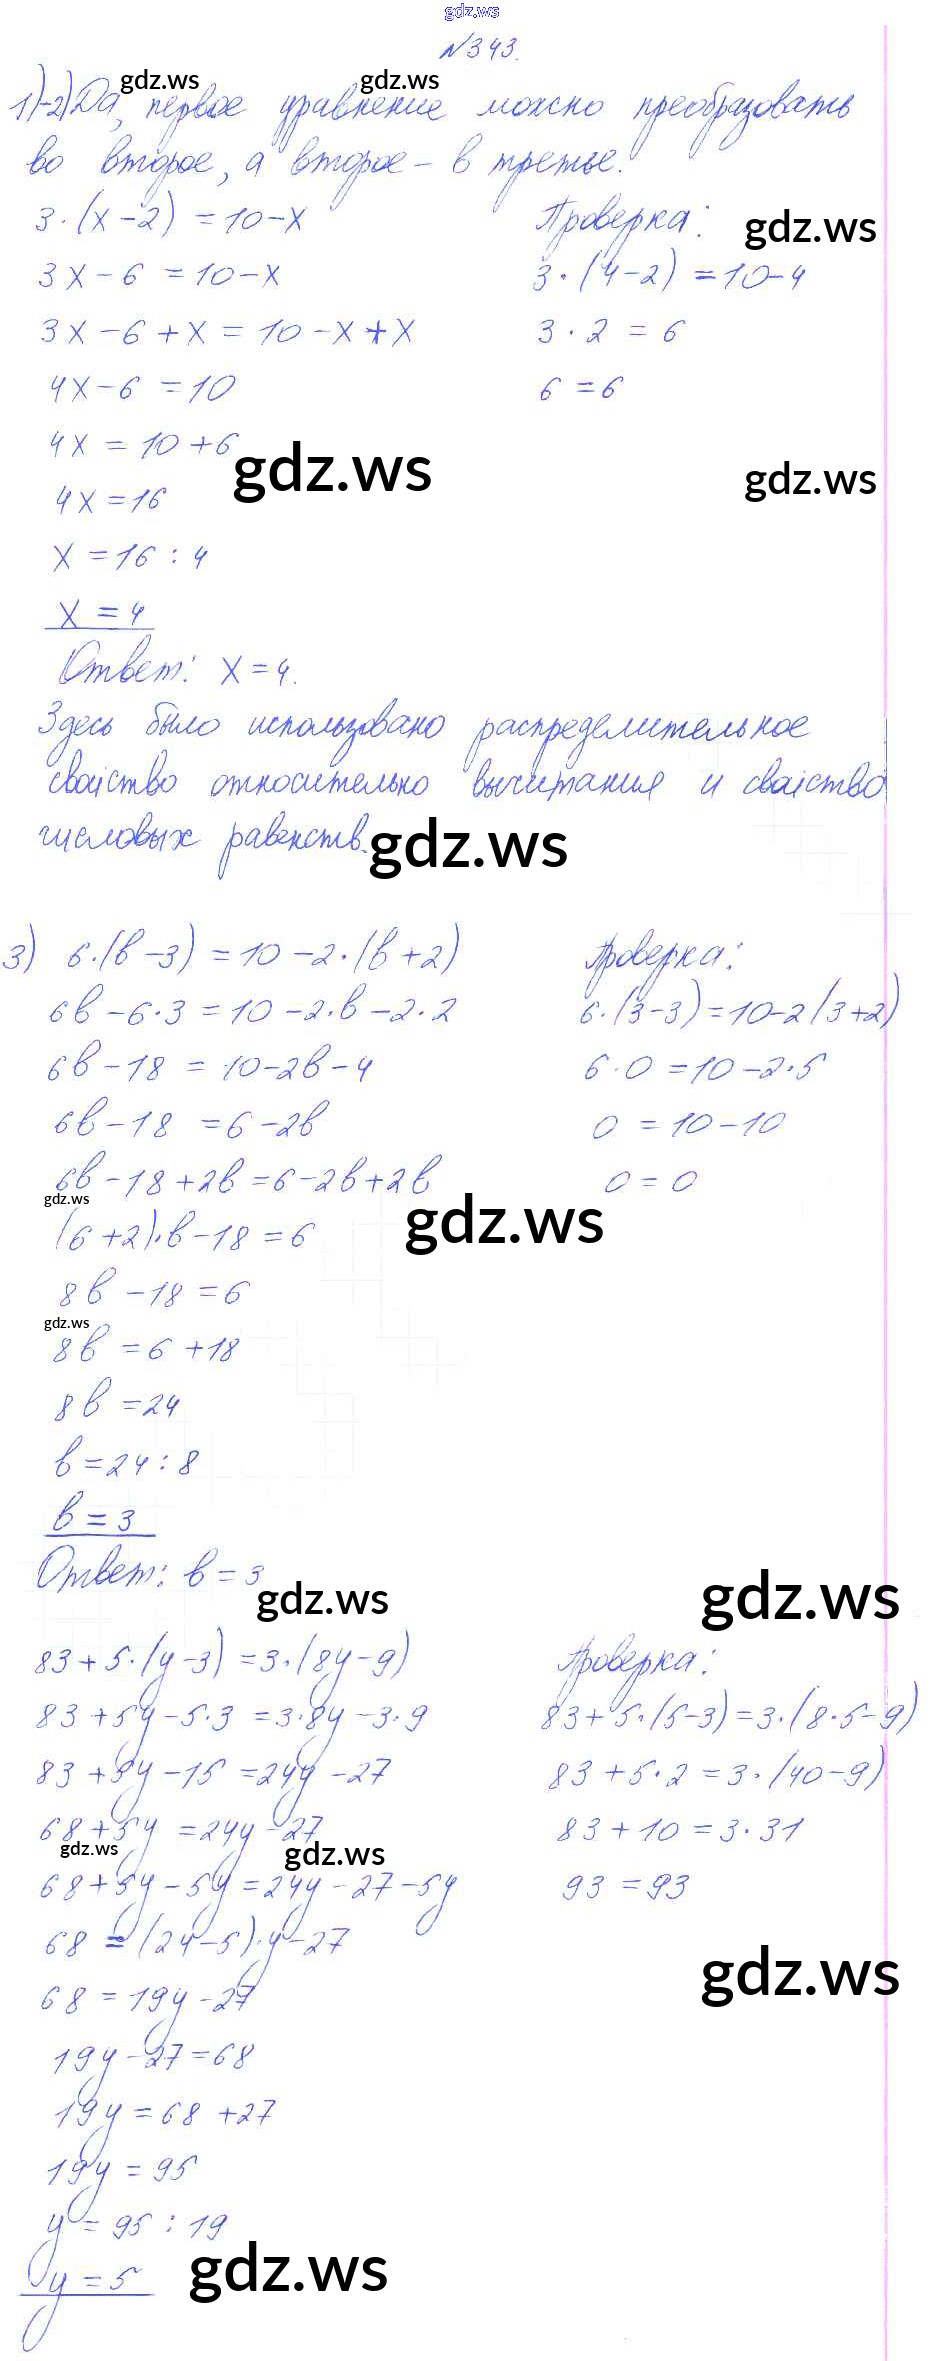 gdz.ws
№343.
gdz.ws gdz.ws
1)-2) Да, первое уравнение можно преобразовать
во второе, а второе – в третье.
3·(x-2) = 10-x
3x-6 = 10-x
3x-6+x = 10-x+x
4x-6 = 10
4x = 10+6
4x = 16
x = 16:4
x = 4
Ответ: x = 4.
Проверка:
3·(4-2) = 10-4
3·2 = 6
6 = 6
gdz.ws
gdz.ws
gdz.ws
Здесь было использовано распределительное
свойство относительно вычитания и свойство
числовых равенств.
gdz.ws
3) 6·(b-3) = 10-2·(b+2)
6b-6·3 = 10-2·b-2·2
6b-18 = 10-2b-4
6b-18 = 6-2b
6b-18+2b = 6-2b+2b
(6+2)·b-18 = 6
8b-18 = 6
8b = 6+18
8b = 24
b = 24:8
b = 3
Ответ: b = 3
Проверка:
6·(3-3) = 10-2(3+2)
6·0 = 10-2·5
0 = 10-10
0 = 0
gdz.ws
gdz.ws
gdz.ws
gdz.ws
gdz.ws
83+5·(y-3) = 3·(8y-9)
83+5y-5·3 = 3·8y-3·9
83+5y-15 = 24y-27
68+5y = 24y-27
68+5y-5y = 24y-27-5y
68 = (24-5)·y-27
68 = 19y-27
19y-27 = 68
19y = 68+27
19y = 95
y = 95:19
y = 5
Проверка:
83+5·(5-3) = 3·(8·5-9)
83+5·2 = 3·(40-9)
83+10 = 3·31
93 = 93
gdz.ws
gdz.ws
gdz.ws
gdz.ws